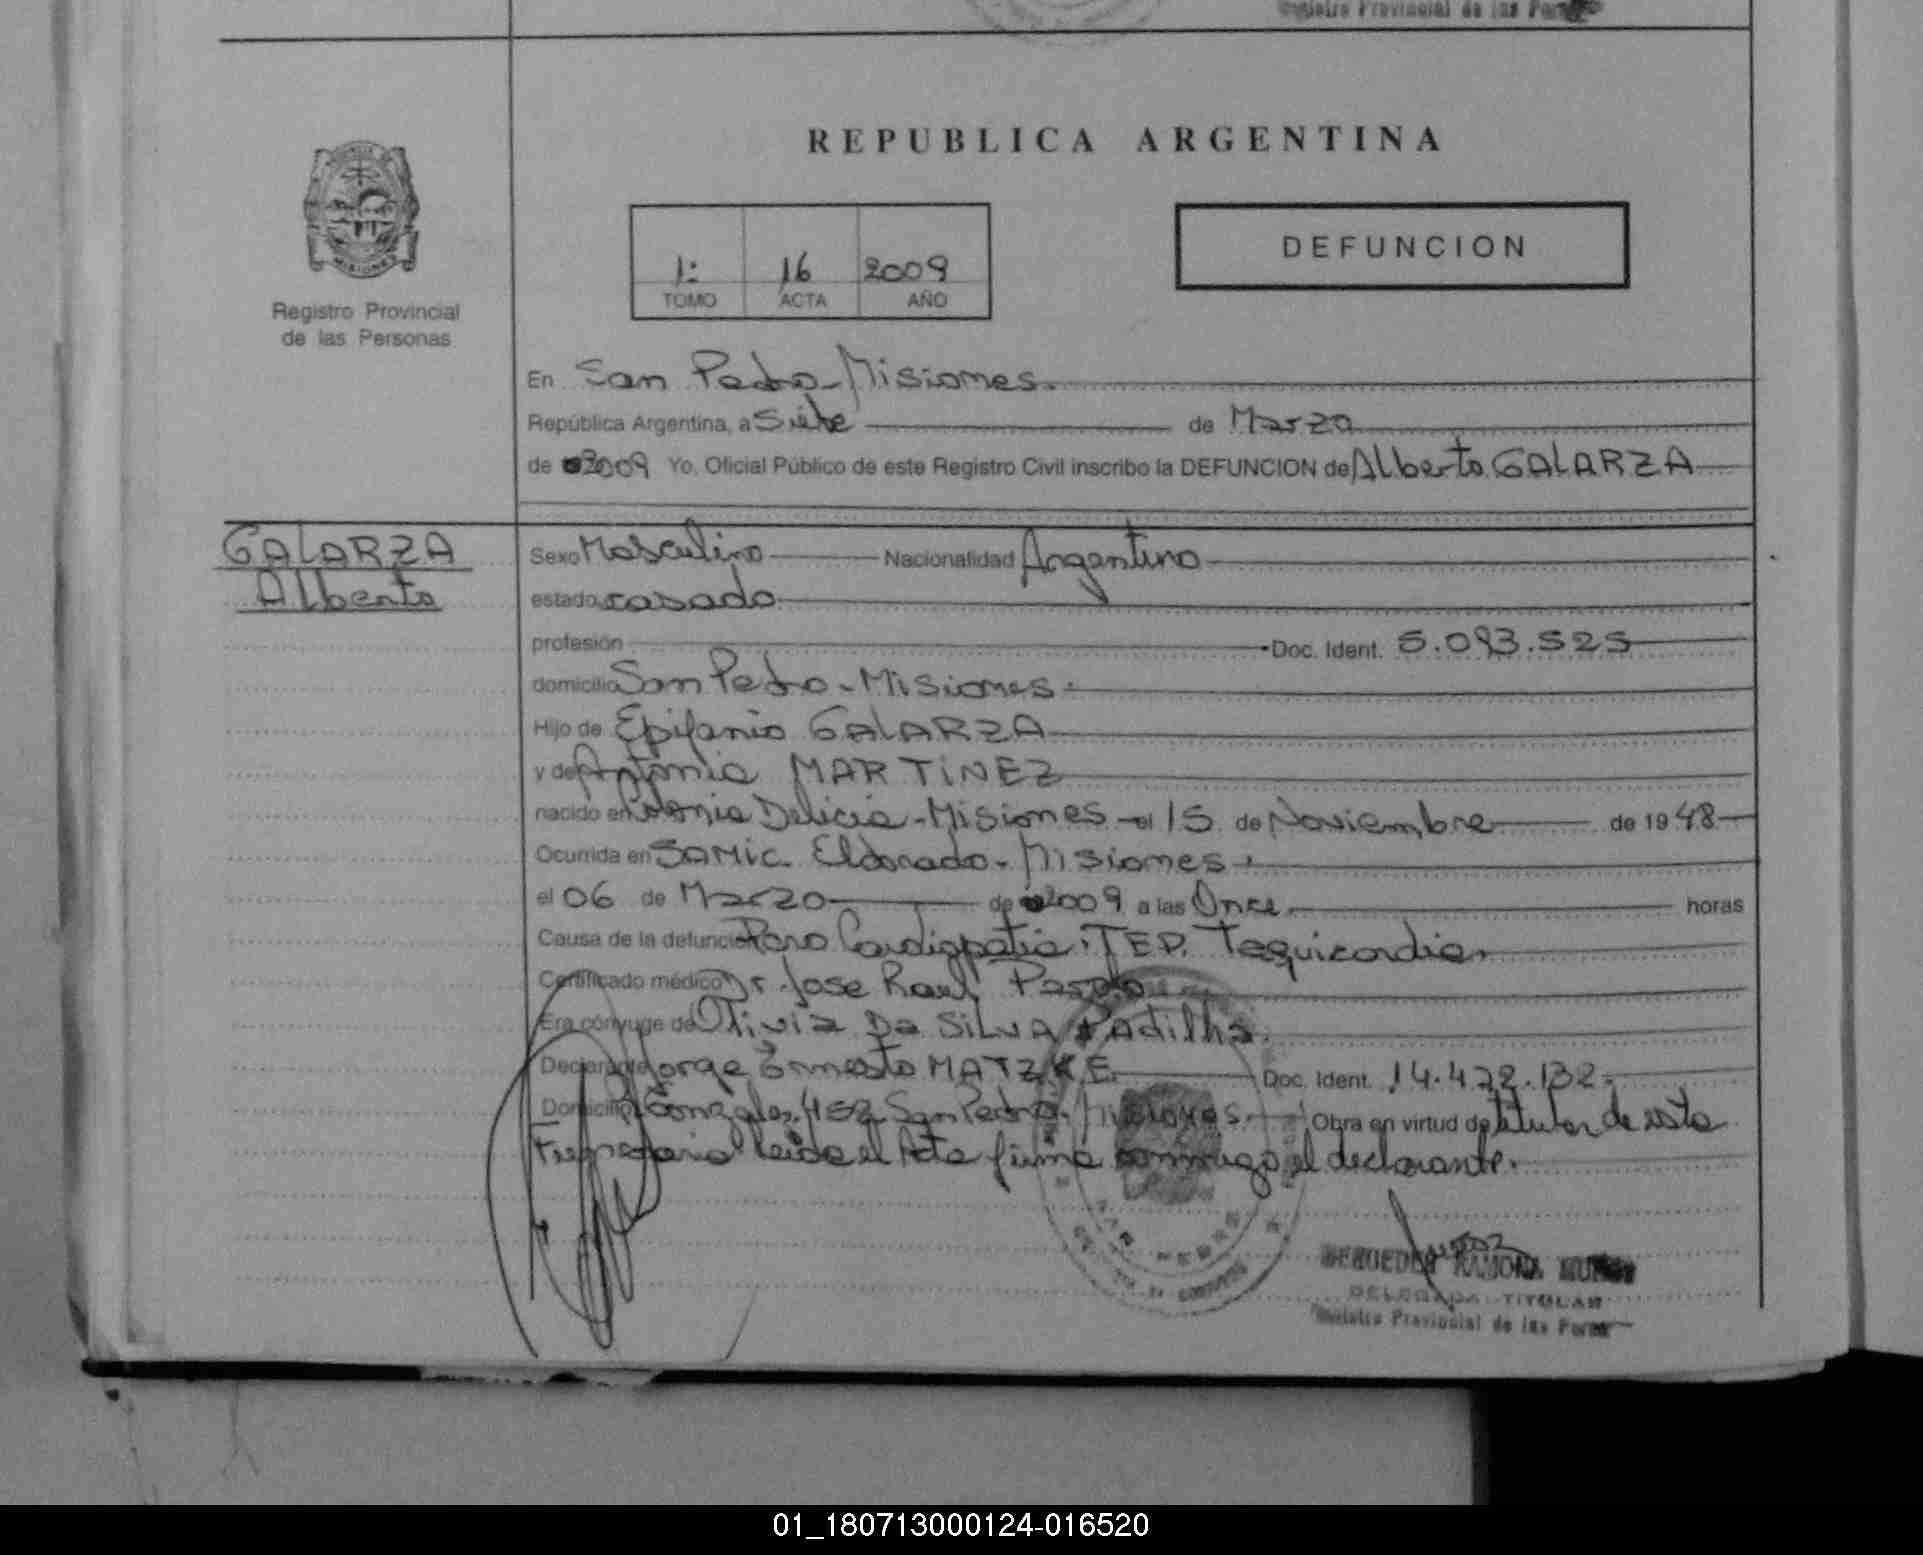 Registro Provincial de las
REPUBLICA ARGENTINA
MISIONES
Registro Provincial
de las Personas
1: 16 2009
TOMO ACTA AÑO
DEFUNCION
En San Pedro-Misiones.
República Argentina, a Siete de Marzo
de 2009 Yo, Oficial Público de este Registro Civil inscribo la DEFUNCION de Alberto GALARZA
GALARZA
Alberto
Sexo Masculino Nacionalidad Argentino
estado casado
profesión Doc. Ident. 5.093.525
domicilio San Pedro-Misiones.
Hijo de Epifanio GALARZA
y de Antonia MARTINEZ
nacido en Colonia Delicia-Misiones el 15 de Noviembre de 1948
Ocurrida en SAMIC. Eldorado-Misiones.
el 06 de Marzo de 2009 a las Once horas
Causa de la defunción Paro Cardiopatia. TEP. Taquicardia.
Certificado médico Dr. Jose Raul
Era cónyuge de Olivia Da SILVA Padilha.
Declarante Jorge Ernesto MATZKE Doc. Ident. 14.472.132.
Domicilio Gonzales. 452 San Pedro-Misiones. Obra en virtud de titular de esta
leida el Acta firma conmigo el declarante.
RAMONA
DELEGADA TITULAR
Registro Provincial de las
01_180713000124-016520